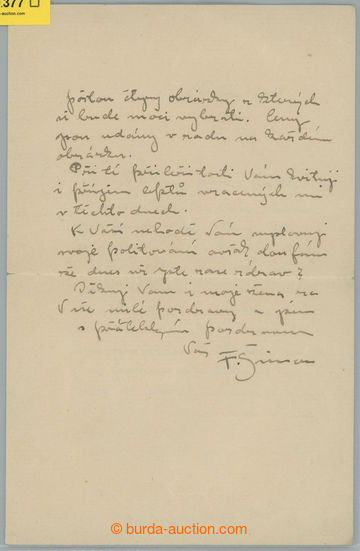 377
-auction.com
pošlou čtyry obrázky z kterých
si bude moci vybrati. Ceny
jsou udány v radu na každém
obrázku.
Při té příležitosti Vám kvituji
i příjem leptů vracených mi
v těchto dnech.
K Vaší nehodě Vám vyslovuji
svoje politování avšak doufám
že dnes už jste zase zdráv?
Děkuji Vám i moje žena za
Vaše milé pozdravy a jsem
s přátelským pozdravem
Váš
F. Šimon
© burda-auction.com